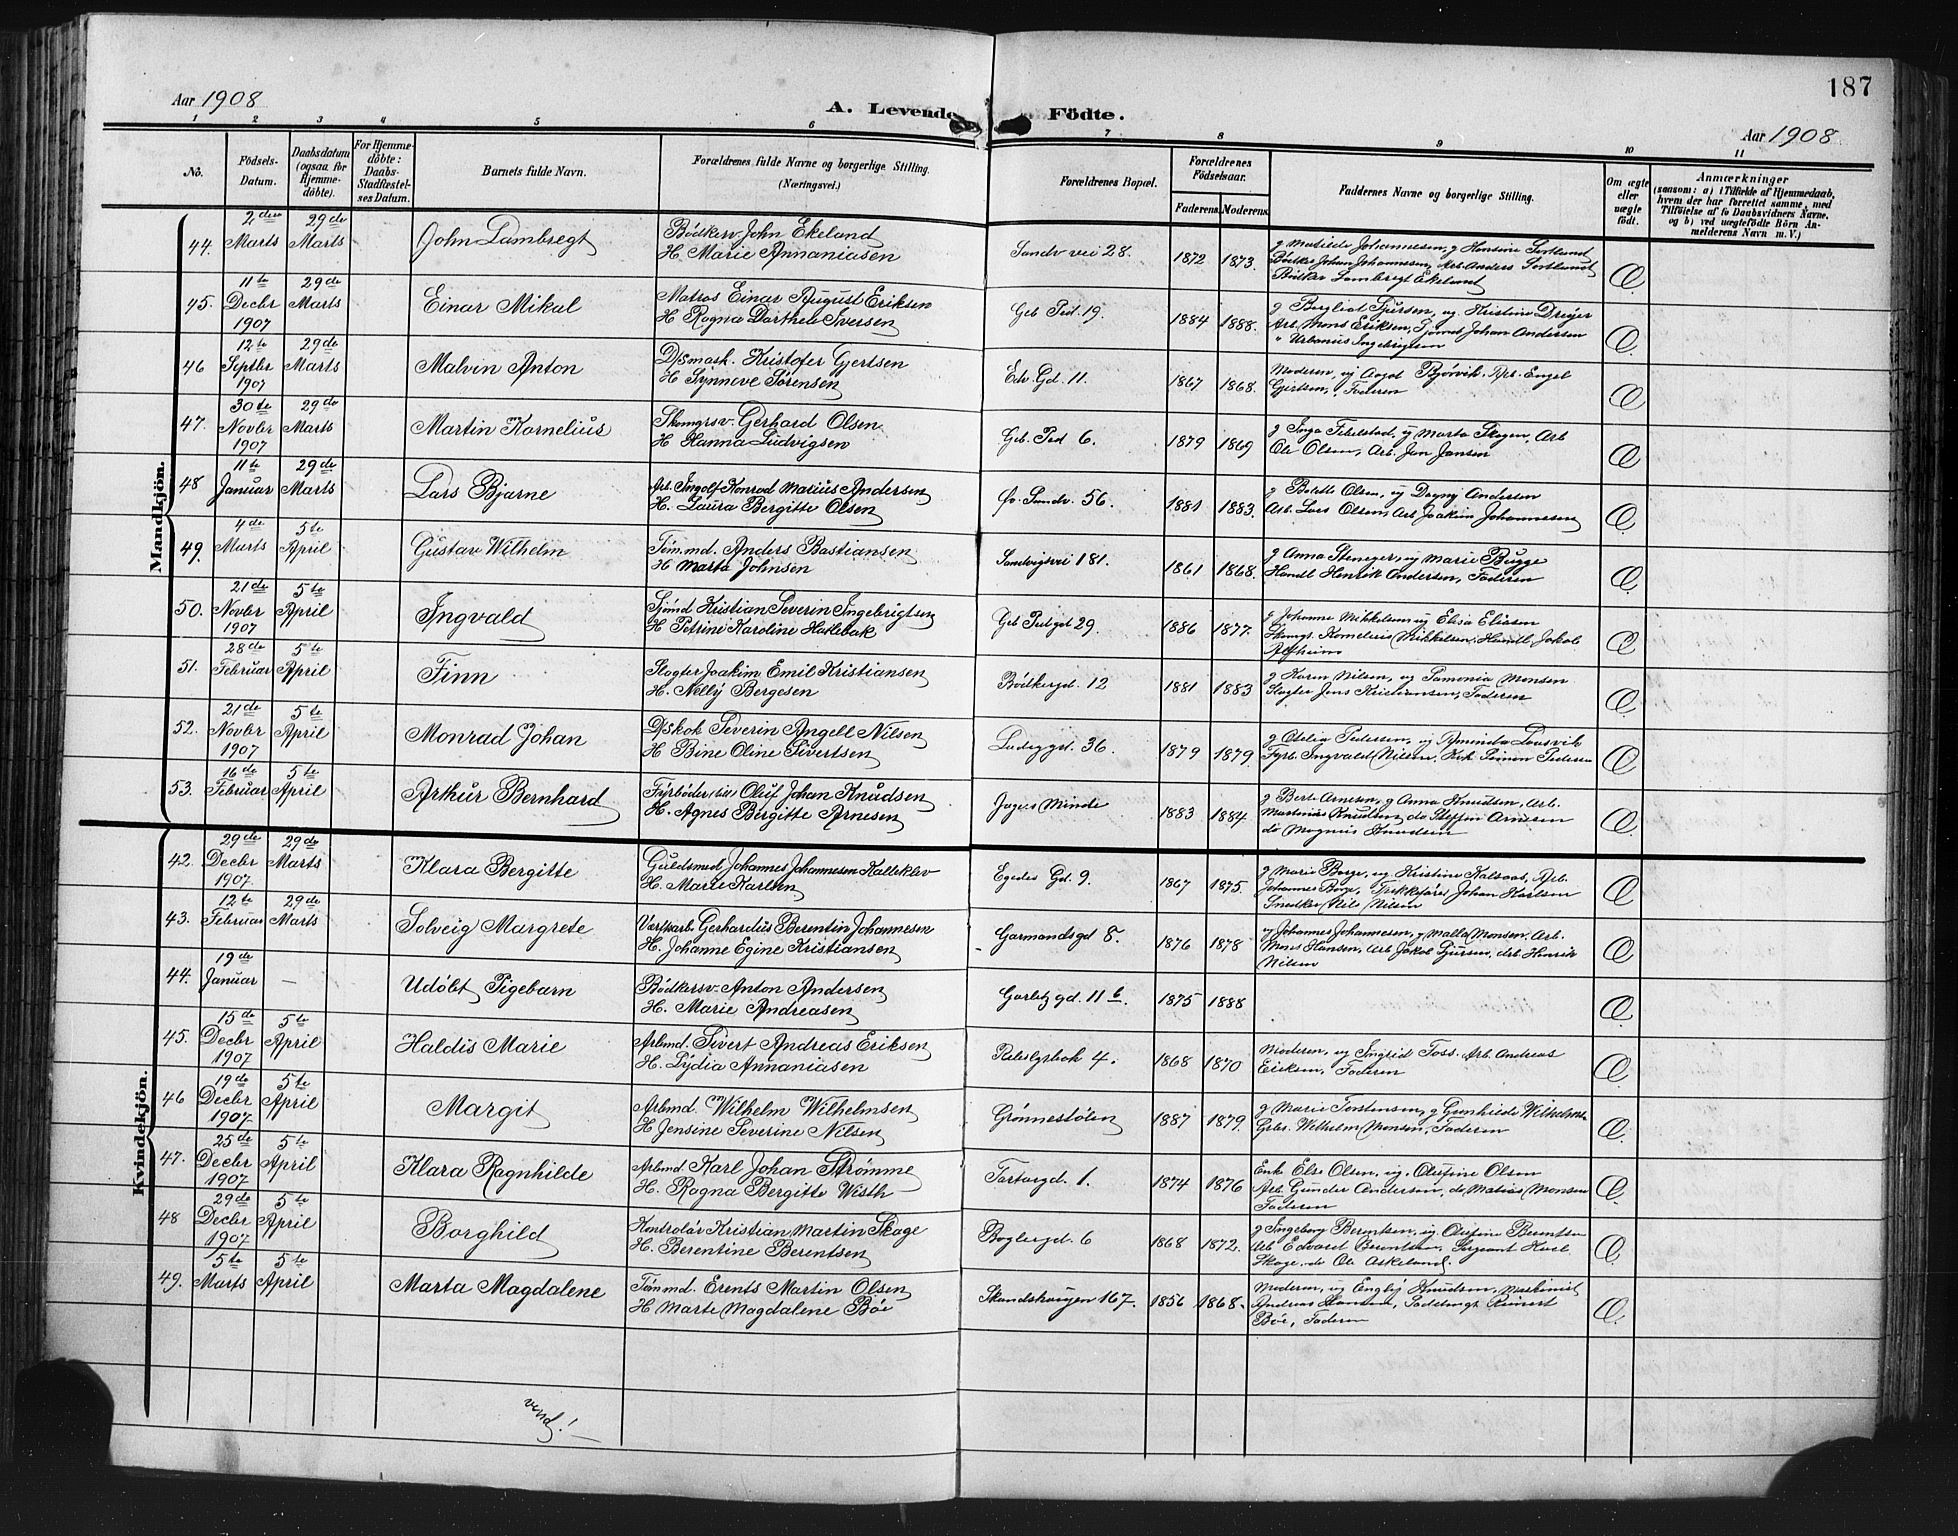 187
Aar 1908
A. Levende Födte.
Aar 1908
1 2 3 4 5 6 7 8 9 10 11
No.
Födsels-Datum.
Daabsdatum (ogsaa for Hjemmedöbte).
For Hjemmedöbte: Daabs-Stadfæstelses Datum.
Barnets fulde Navn.
Forældrenes fulde Navne og borgerlige Stilling. (Næringsvei.)
Forældrenes Bopæl.
Forældrenes Födselsaar.
Faderens. Moderens.
Faddernes Navne og borgerlige Stilling.
Om ægte eller uægte födt.
Anmærkninger
(saasom: a) i Tilfælde af Hjemmedaab, hvem der har forrettet samme, med Tilföielse af to Daabsvidners Navne, og b) ved uægtefödte Börn Anmelderens Navn m. V.)
Mandkjön.
44. 2den Marts 29de Marts John Lambregt Bødkersv. John Ekeland H. Marie Annaniasen Sandv vei 28. 1872 1873. g Matilde Johannesen, g Hansine Sortland Bødker Johan Johannesen, Arb. Anders Sortland Bødker Lambregt Ekeland Æ.
45. 11te Decbr 1907 29de Marts Einar Mikal Matros Einar August Eriksen H Ragna Dorthea Iversen Geb Ped. 19. 1884 1888. g Bergliot Sjursen, ug Kristine Dreyer Arb Mons Eriksen, Sjømd Johan Andersen " Urbanius Ingebrigtsen Æ.
46 12te Septbr 1907 29de Marts Malvin Anton D/smask. Kristofer Gjertsen H Synneve Sørensen Edv Gd. 11. 1867 1868. Moderen, ug Aagot Bjørvik, Arb. Engel Gjertsen, Faderen Æ
47. 30te Novbr 1907 29de Marts Martin Kornelius Skomgrsv. Gerhard Olsen H Hanna Ludvigsen Geb. Ped 6. 1879 1869 g Inga Fikelstad, ug Marta Skagen, Arb Ole Olsen, Arb. Jan Jansen Æ
48 11te Januar 29de Marts Lars Bjarne Arb. Ingolf Konrad Marius Andersen H. Laura Bergitte Olsen Øv. Sandv. 56. 1881 1883. g Bolette Olsen, ug Dagny Andersen Arb. Lars Olsen, Arb. Joakim Johannesen Æ
49. 4de Marts 5te April Gustav Wilhelm Tømmd. Anders Bastiansen H Marta Johnsen Sandvigsvei 181. 1861 1868. g Anna Steneger, ug Marie Bugge Handl Henrik Andersen, Faderen Æ.
50. 21de Novbr 1907 5te April Ingvald Sjømd Kristian Severin Ingebrigtsen H Petrine Karoline Hatlebak Geb Pedgd 29. 1886 1877. g Johanne Mikkelsen ug Elisa Eliesen Skomgr. Kornelius Mikkelsen, Handl. Jakob Alfheim Æ
51. 28de Februar 5te April Finn Slagter Joakim Emil Kristiansen H. Nelly Bergesen Bødkergd. 12 1881 1883 g Karen Nilsen, ug Pamonia Monsen Slagter Jens Kristiansen, Faderen Æ.
52. 21de Novbr 1907 5te April Monrad Johan D/Skok Severin Angell Nilsen H Bine Oline Sivertsen Ladeggd. 36. 1879 1879. g Odelia Pedersen, ug Aminda Lousvik Fyrb. Ingvald Nilsen, Kok Simon Pedersen Æ
53. 16de Februar 5te April Arthur Bernhard Fyrbøder Oluf Johan Knudsen H. Agnes Bergitte Arnesen Jægers Minde 1883 1884. g Berta Arnesen, g Anna Knudsen, Arb. Martinius Knudsen, do Steffen Arnesen do Magnus Knudsen Æ.
Kvindekjön.
42. 29de Decbr 1907. 29de Marts Klara Bergitte Guldsmed Johannes Johannesen Kalleklev H. Marie Karlsen Egedes Gd. 9. 1867 1875. g Marie Borge, ug Kristine Kalsaas, Arb. Johannes Borge, Trækkfører Johan Karlsen Snedker Nils Nilsen Æ
43. 12te Februar 29de Marts Solveig Margrete Værftsarb Gerhardus Berentin Johannesen H. Johanne Egine Kristiansen Garmandsgd 8. 1876 1878 g Johannes Johannesen, g Malla Monsen, Arb. Mons Hansen, Arb Jakob Sjursen, Arb. Henrik Nilsen Æ
44. 19de Januar — Udøbt Pigebarn Bødkersv. Anton Andersen H. Marie Andreasen Garbitzgd. 11 b. 1875 1888 Æ
45. 15de Decbr 1907 5te April Haldis Marie Arbmd. Sivert Andreas Eriksen H. Lydia Annaniasen 4. 1868 1870 Moderen, ug Ingrid Foss. Arb Andreas Eriksen, Faderen Æ
46 19de Decbr 1907 5te April Margit Arbmd. Wilhelm Wilhelmsen H. Jensine Severine Nilsen Grønnestølen 1887 1879. g Marie Torstensen, g Gunhilde Wilhelmsen Wilhelm Monsen, Faderen Æ.
47. 25de Decbr 1907 5te April Klara Ragnhilde Arbmd. Karl Johan Strømme H. Ragna Bergitte Wisth Tartargd. 1. 1874 1876 Enk Else Olsen, ug. Olufine Olsen Arb. Gunder Andersen, do Matias Monsen Faderen Æ.
48 29de Decbr 1907 5te April Borghild Kontrolør Kristian Martin Skage H. Berentine Berentsen Boglergd. 6 1868 1872. g Ingeborg Berentsen, ug. Olufine Berentsen Arb. Edvard Berentsen, Sergeant Karl Skage, do Ole Askeland. Æ.
49. 5te Marts 5te April Marta Magdalene Tømmd. Erents Martin Olsen H Marte Magdalene Bøe Skandshaugen 167. 1856 1868. Moderen, ug Engly Knudsen, Maskinist Andreas Hansen, Sadelmgr Reinert Bøe, Faderen Æ.
vend!